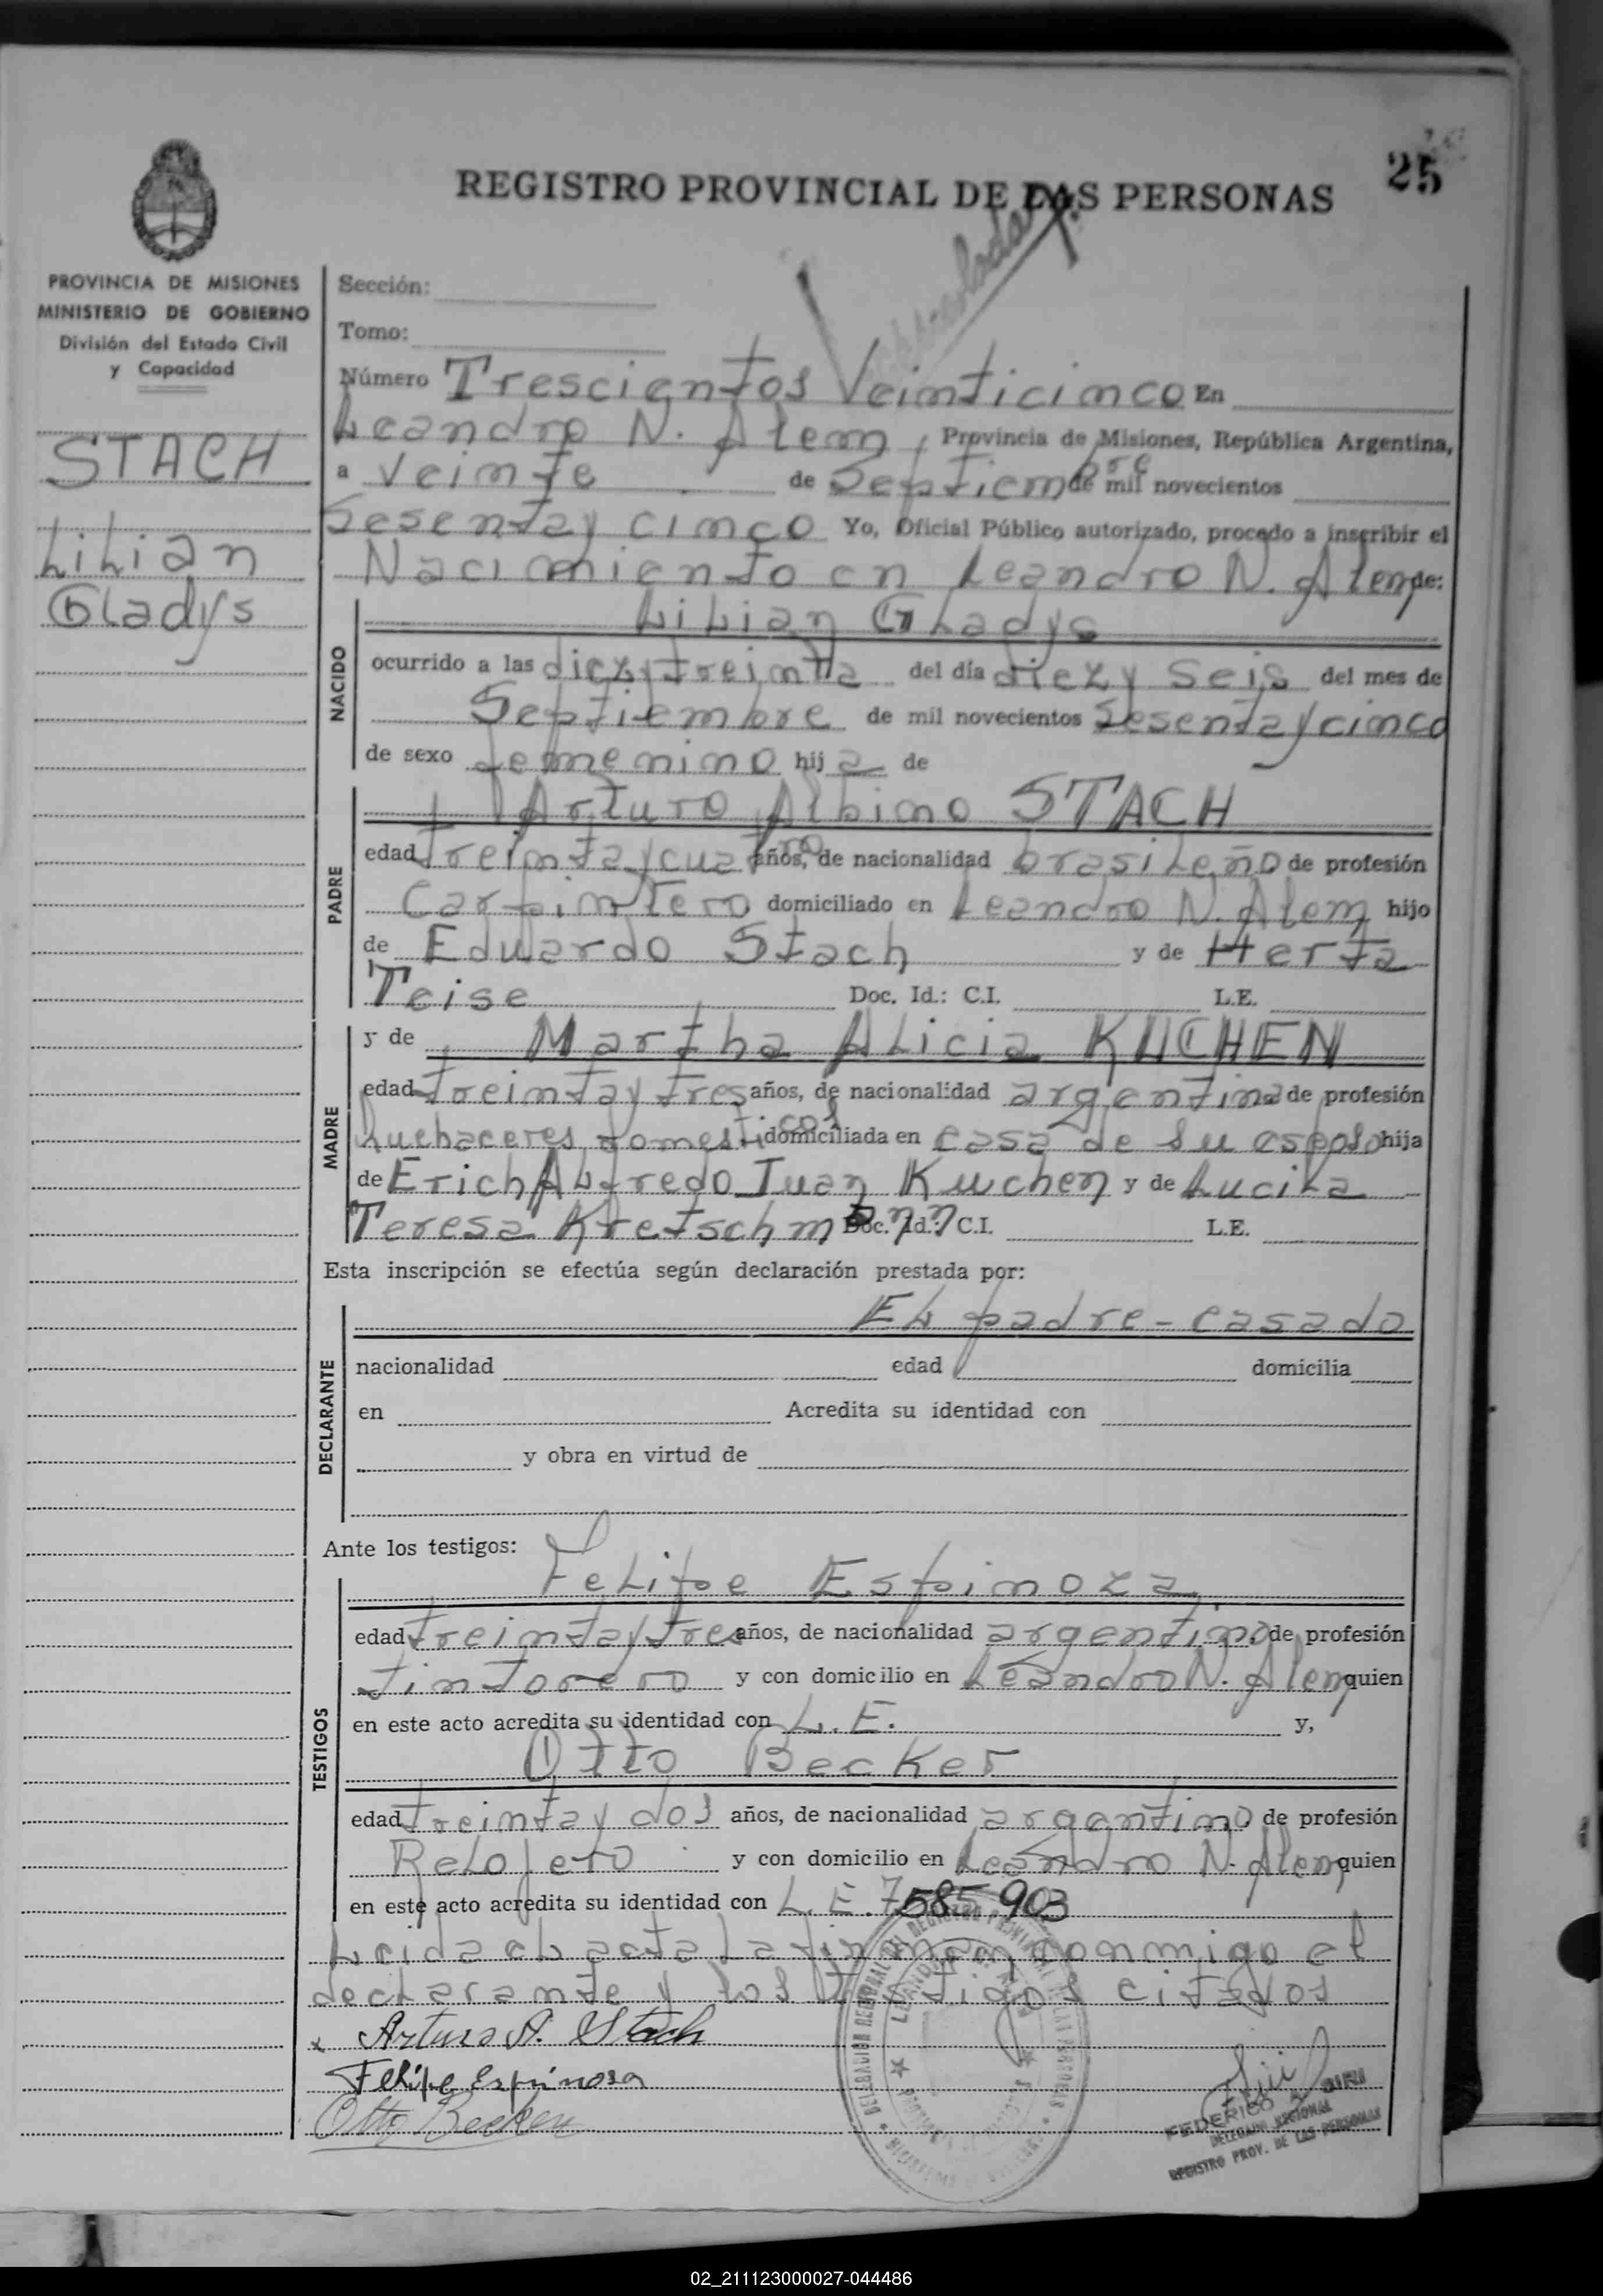 25
REGISTRO PROVINCIAL DE LAS PERSONAS
PROVINCIA DE MISIONES
MINISTERIO DE GOBIERNO
División del Estado Civil
y Capacidad
STACH
Lilian
Gladys
Sección:
Tomo:
Número Trescientos Veinticinco En
Leandro N. Alem, Provincia de Misiones, República Argentina,
a veinte de Septiembre de mil novecientos
Sesenta y cinco Yo, Oficial Público autorizado, procedo a inscribir el
Nacimiento en Leandro N. Alem de:
NACIDO
Lilian Gladys
ocurrido a las diez y treinta del día diez y seis del mes de
Septiembre de mil novecientos Sesenta y cinco
de sexo femenino hija de
PADRE
Arturo Albino STACH
edad treinta y cuatro años, de nacionalidad brasileño de profesión
Carpintero domiciliado en Leandro N. Alem hijo
de Eduardo Stach y de Herta
Teise Doc. Id.: C.I. L.E.
MADRE
y de Martha Alicia KUCHEN
edad treinta y tres años, de nacionalidad argentina de profesión
quehaceres domesticos domiciliada en casa de su esposo hija
de Erich Alfredo Juan Kuchen y de Lucila
Teresa Kretschmann Doc. Id.: C.I. L.E.
Esta inscripción se efectúa según declaración prestada por:
DECLARANTE
El padre - casado
nacionalidad edad domicilia
en Acredita su identidad con
y obra en virtud de
Ante los testigos:
TESTIGOS
Felipe Espinoza
edad treinta y tres años, de nacionalidad argentino de profesión
tintorero y con domicilio en Leandro N. Alem quien
en este acto acredita su identidad con L.E. y,
Otto Becker
edad treinta y dos años, de nacionalidad argentino de profesión
Relojero y con domicilio en Leandro N. Alem quien
en este acto acredita su identidad con L.E. 7.585.903
Leida el acta la firman conmigo el
declarante y los testigos citados
x Arturo A. Stach
Felipe Espinosa
Otto Becker
FEDERICO
DELEGADO REGIONAL
REGISTRO PROV. DE LAS PERSONAS
02_211123000027-044486